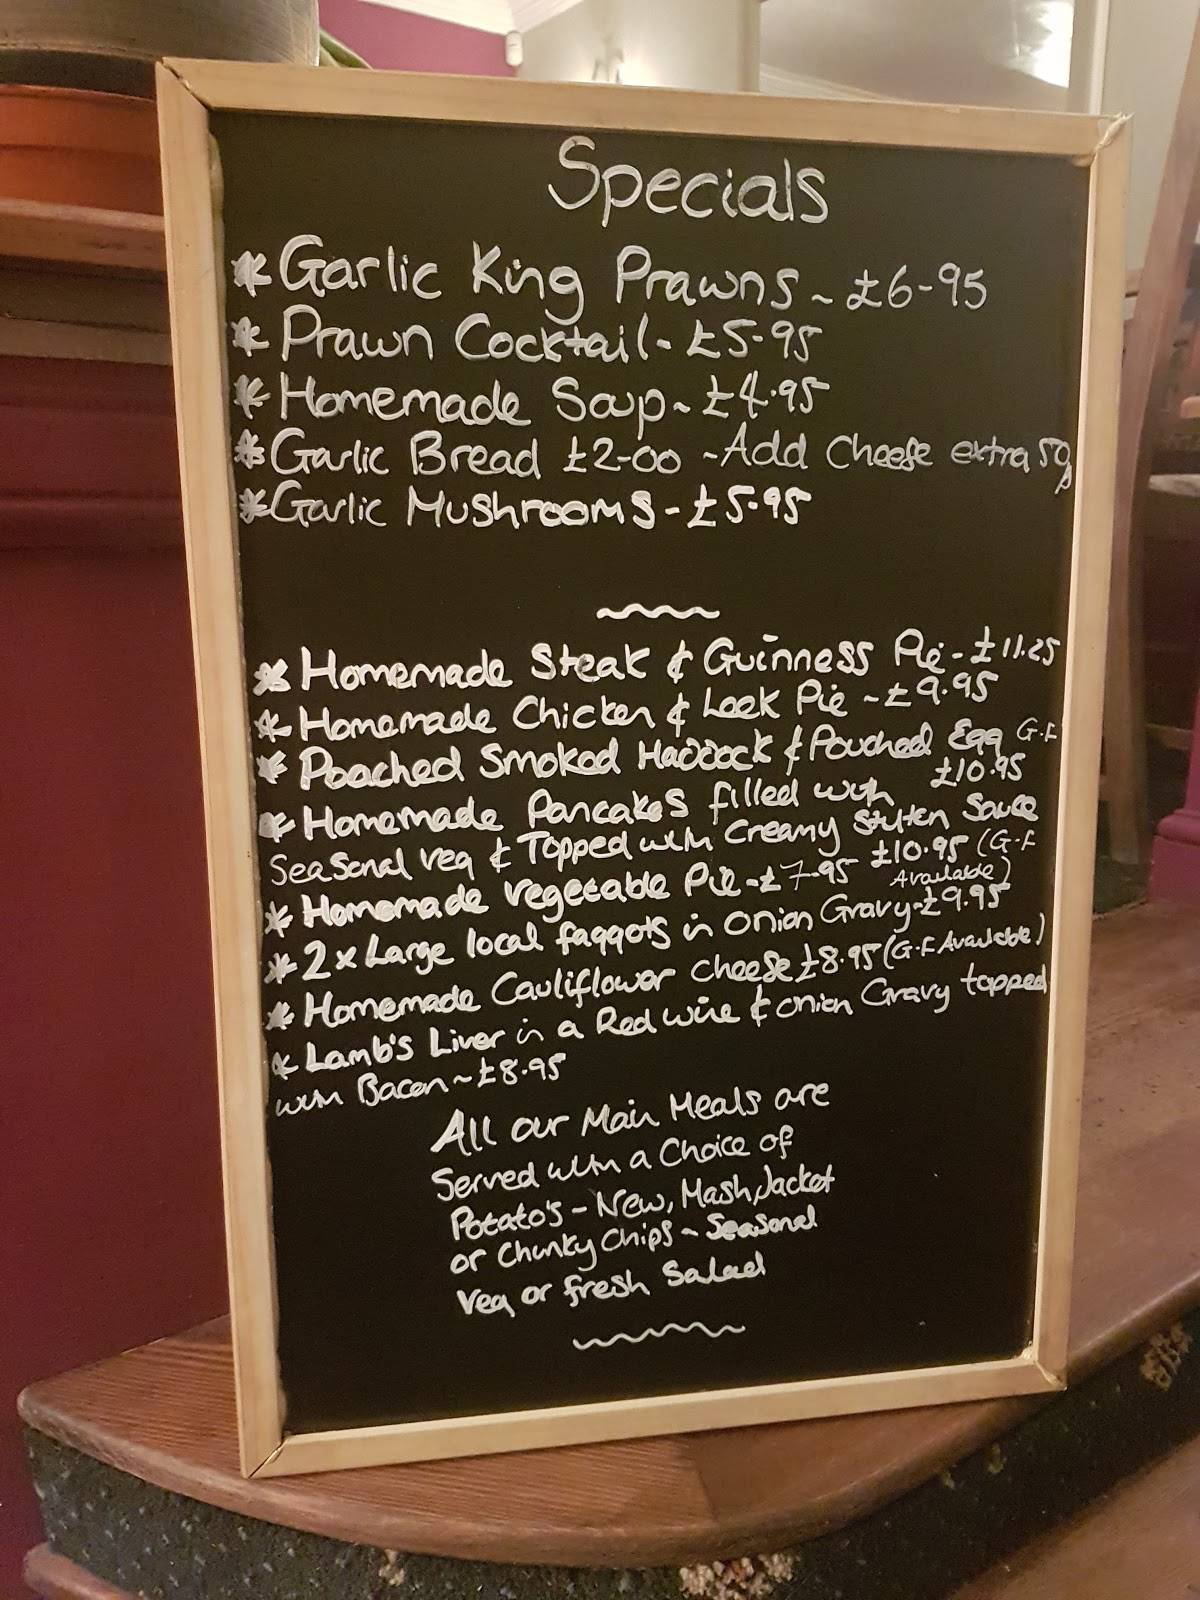 Specials
* Garlic King Prawns ~ £6-95
* Prawn Cocktail - £5-95
* Homemade Soup ~ £4.95
* Garlic Bread £2-00 - Add Cheese extra 50p
* Garlic Mushrooms - £5.95
* Homemade Steak & Guinness Pie - £11.25
* Homemade Chicken & Leek Pie ~ £9.95
* Poached Smoked Haddock & Pouched Egg G.F
£10.95
* Homemade Pancakes filled with
Seasonal veg & Topped with Creamy Stilten Sauce
£10.95 (G.F Available)
* Homemade Vegetable Pie - £7-95
* 2 x Large local faggots in Onion Gravy - £9.95
* Homemade Cauliflower cheese £8.95 (G.F Available)
* Lamb's Liver in a Red wine & onion Gravy topped
with Bacon ~ £8.95
All our Main Meals are
Served with a Choice of
Potato's - New, Mash, Jacket
or Chunky Chips ~ Seasonal
veg or fresh Salad